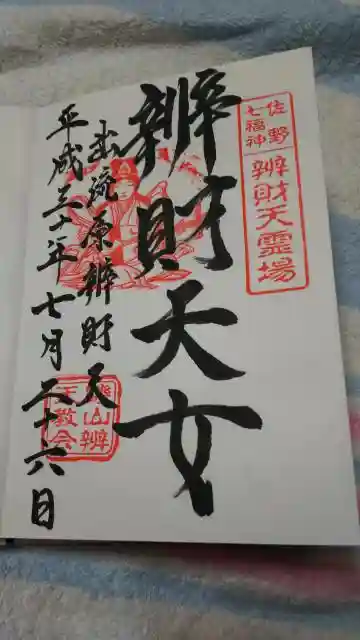 佐野
七福神
辨財天霊場
辨財天女
出流原辨財天
平成三十年七月二十六日